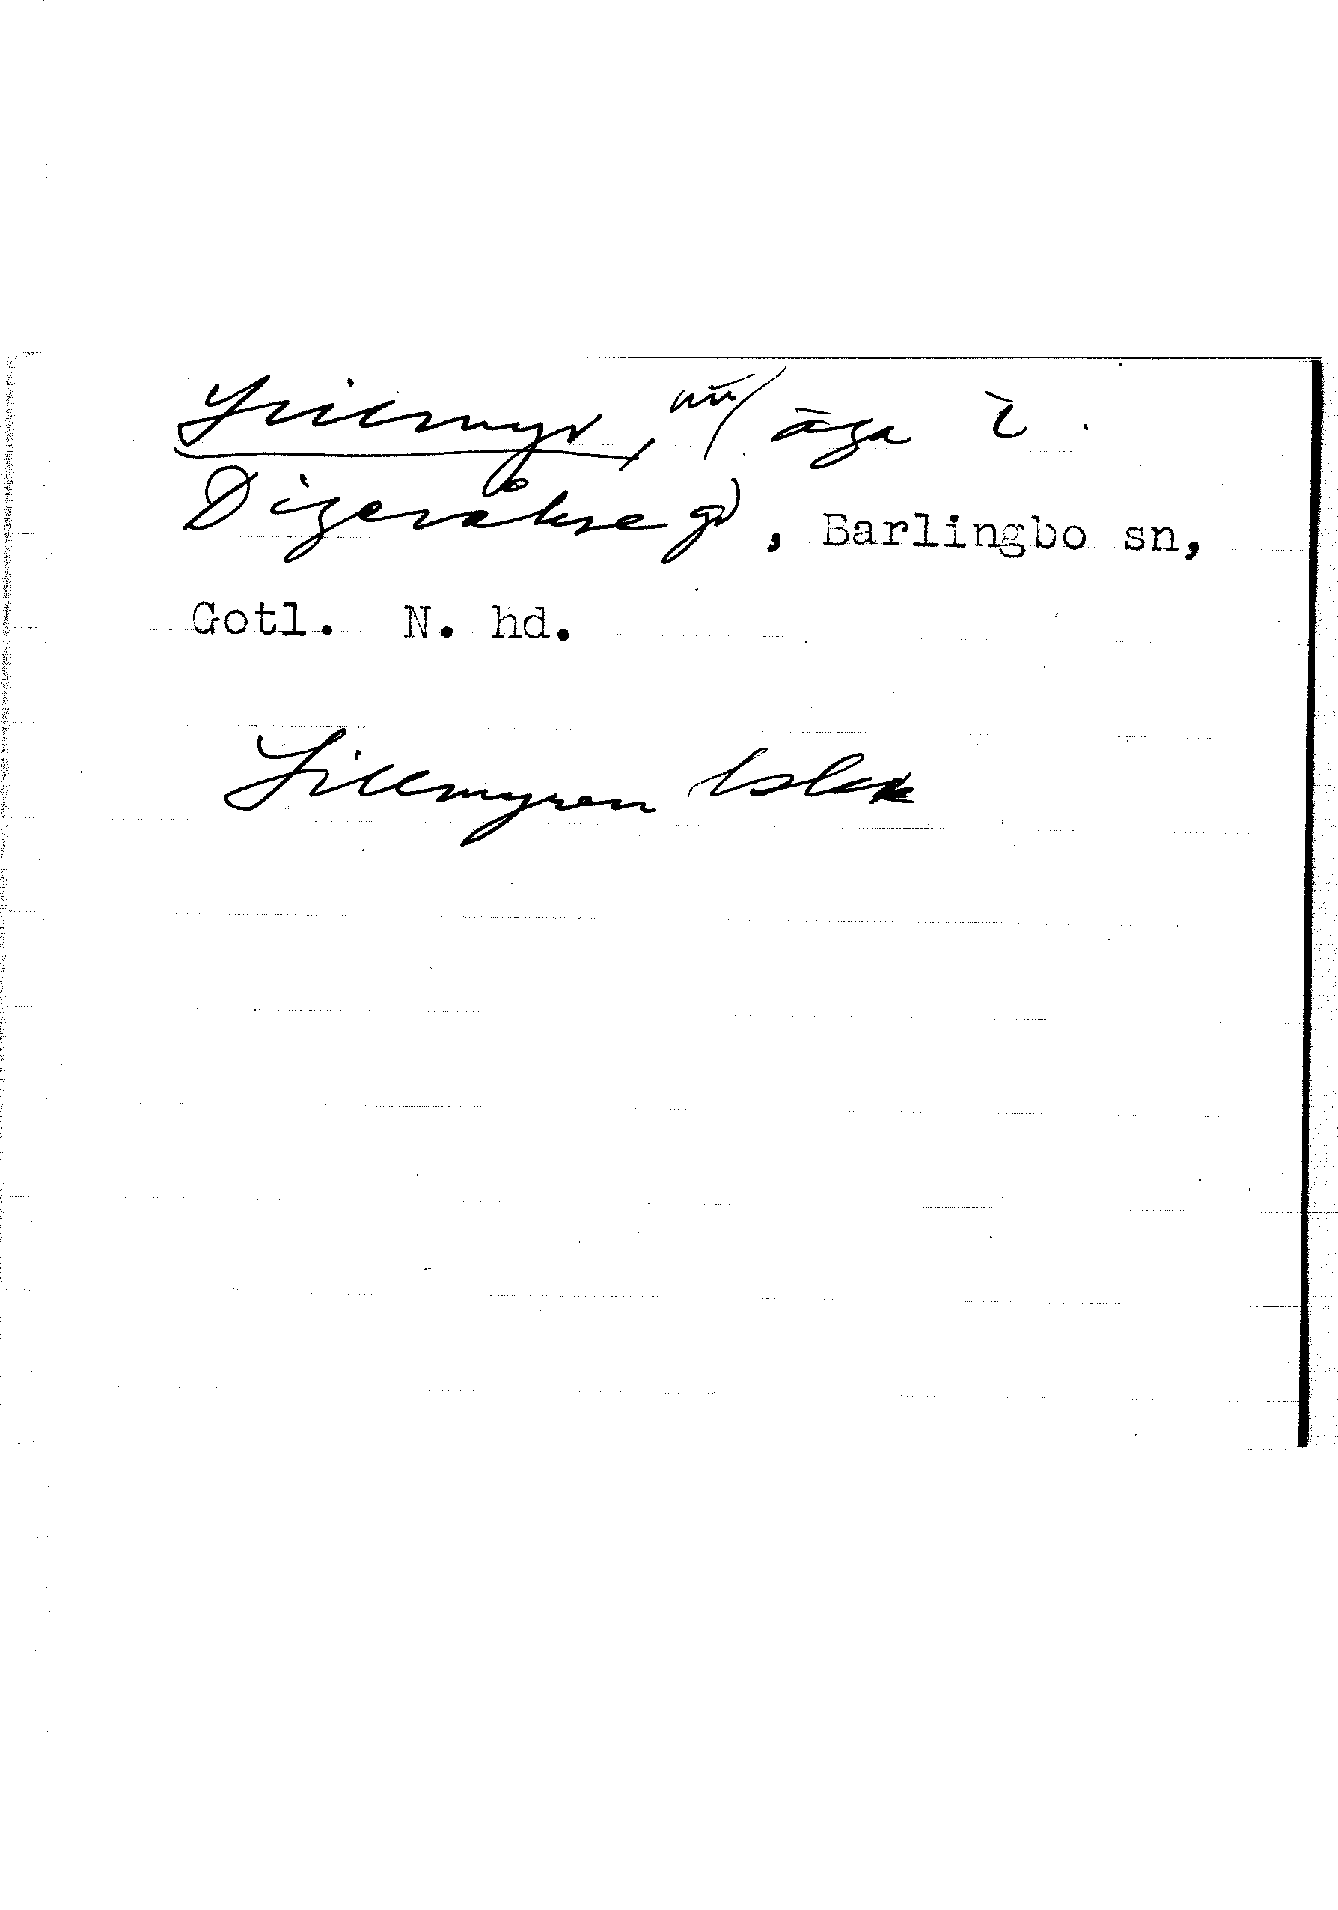 Lillmyr, nu äga i
Digeråkra gd, Barlingbo sn,
Gotl. N. hd.
Lillmyren